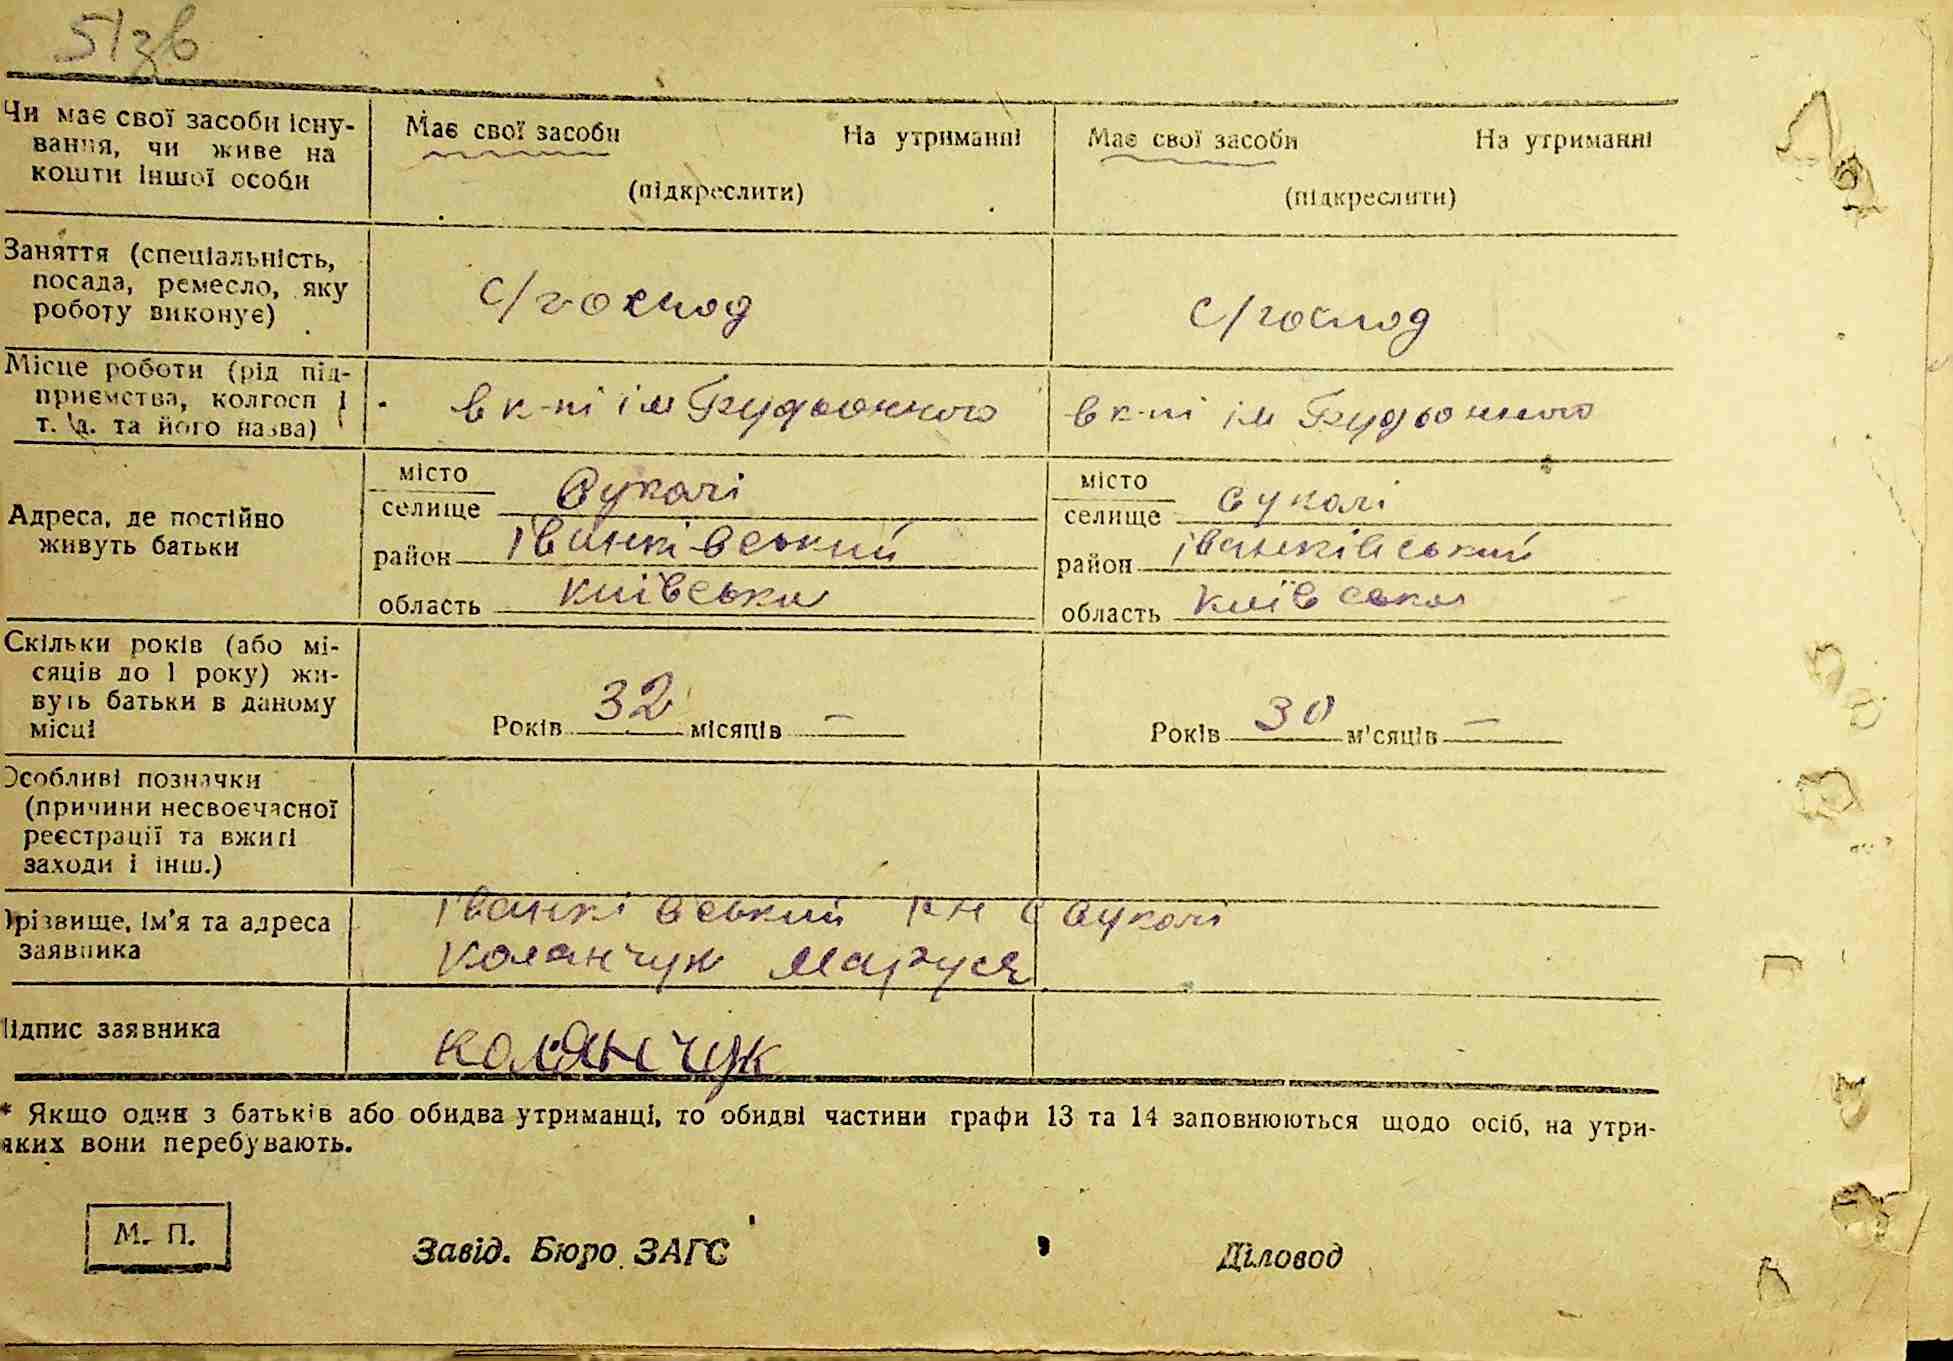 51зв
Чи має свої засоби існу-
вання, чи живе на
кошти іншої особи
Має свої засоби На утриманні
(підкреслити)
Має свої засоби На утриманні
(підкреслити)
Заняття (спеціальність,
посада, ремесло, яку
роботу виконує)
с/господ
с/господ
Місце роботи (рід під-
приємства, колгосп і
т. д. та його назва)
в к-пі ім Будьонного
в к-пі ім Будьонного
Адреса, де постійно
живуть батьки
місто
селище Сукачі
район Іванківський
область Київська
місто
селище Сукачі
район Іванківський
область Київська
Скільки років (або мі-
сяців до 1 року) жи-
вуть батьки в даному
місці
Років 32 місяців —
Років 30 м'сяців —
Особливі позначки
(причини несвоєчасної
реєстрації та вжиті
заходи і інш.)
Прізвище, ім'я та адреса
заявника
Іванківський рн с Сукачі
Коланчук Маруся
Підпис заявника
колянчук
* Якщо один з батьків або обидва утриманці, то обидві частини графи 13 та 14 заповнюються щодо осіб, на утри-
яких вони перебувають.
М. П.
Завід. Бюро ЗАГС
Діловод